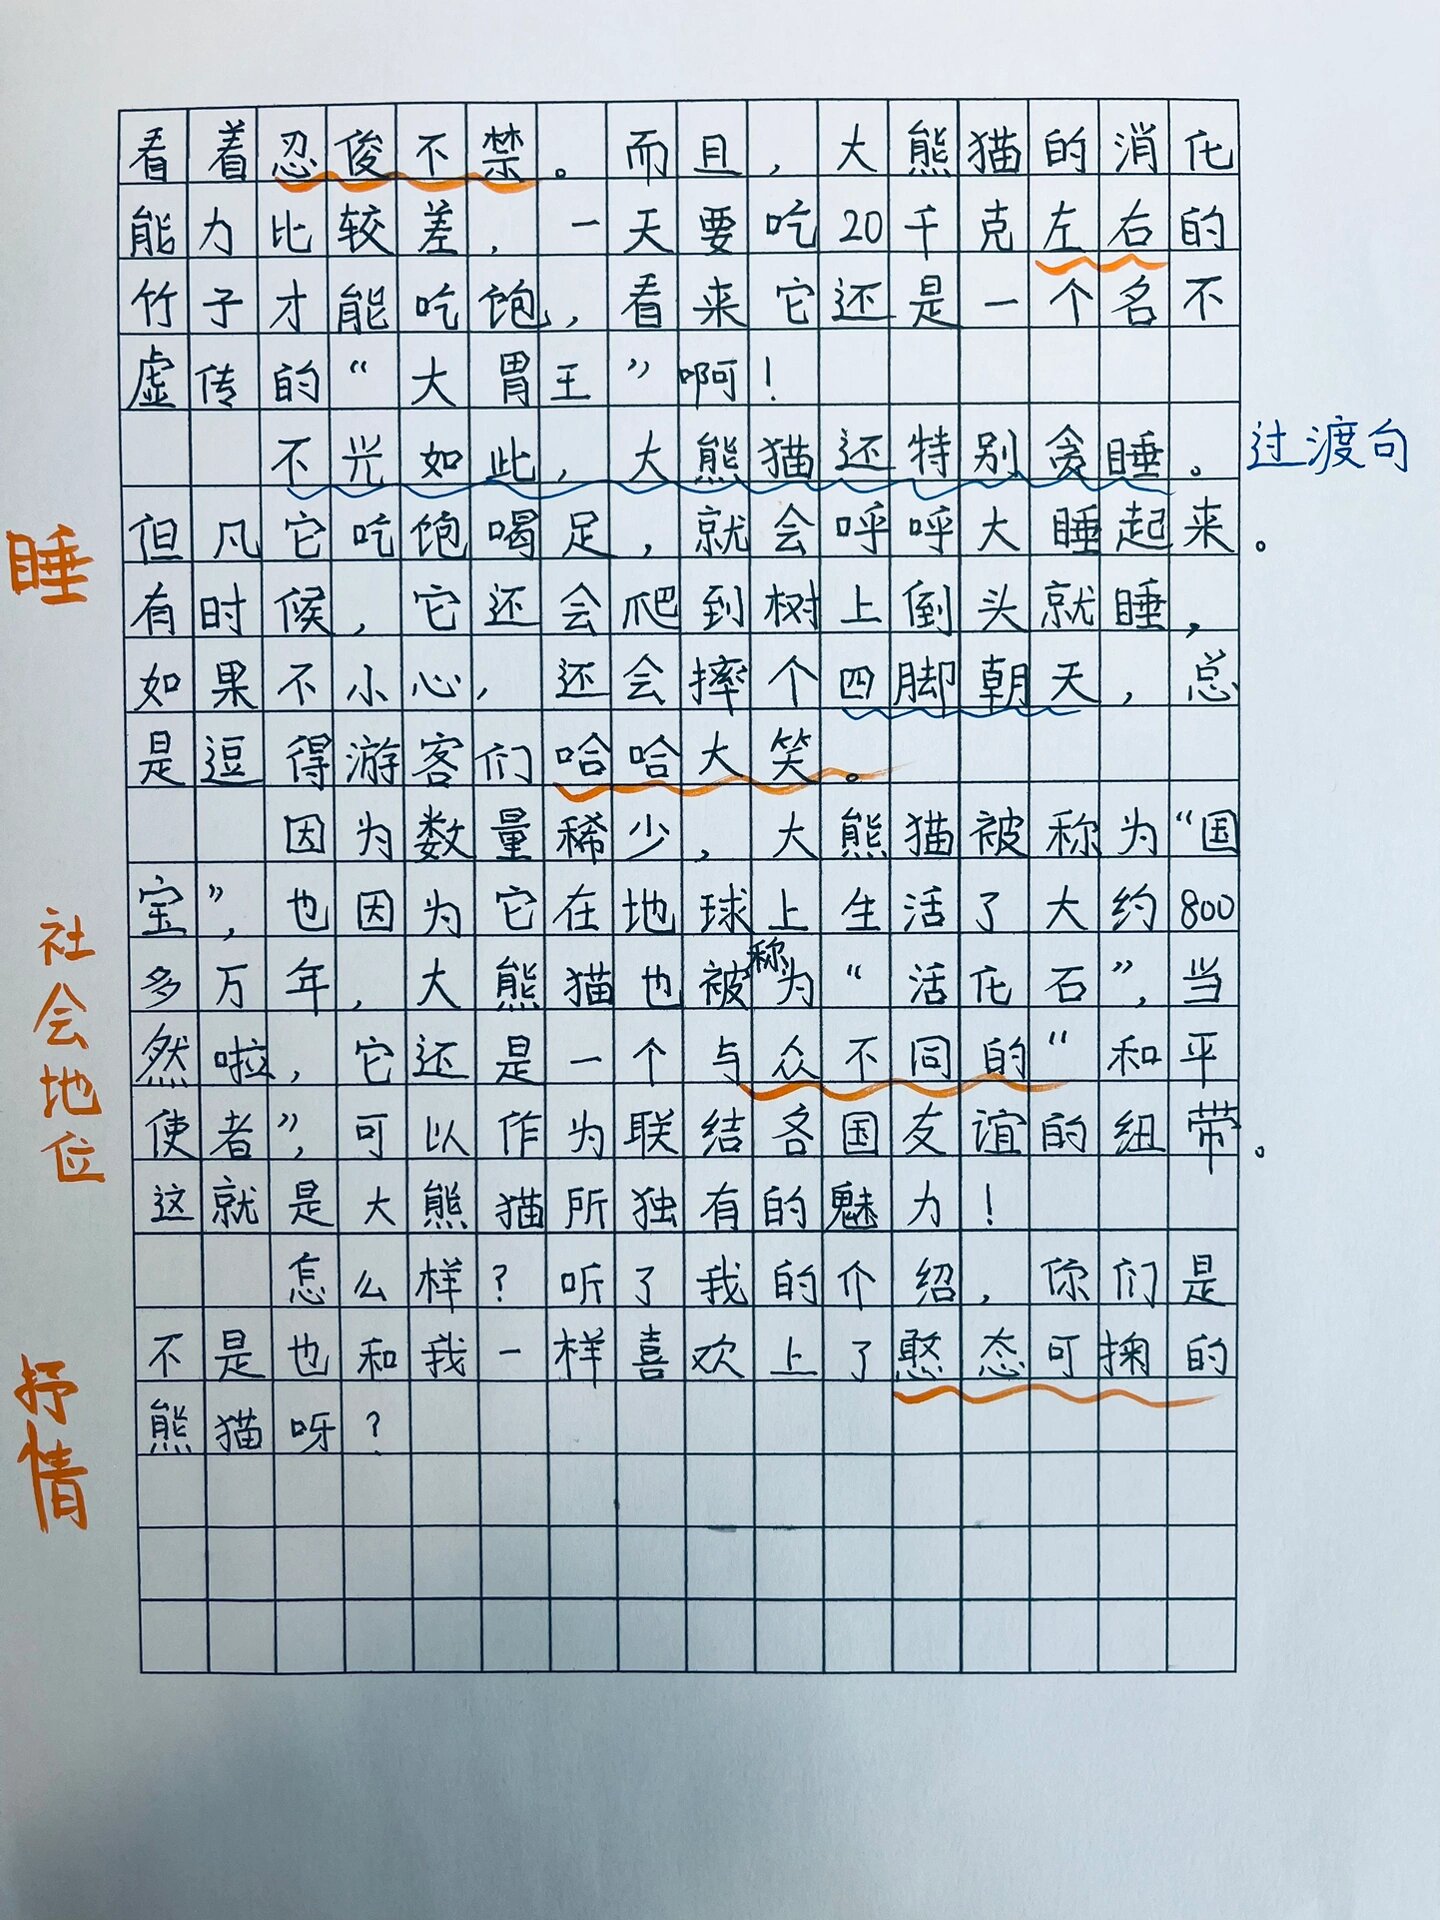 看着忍俊不禁。而且，大熊猫的消化
能力比较差，一天要吃20千克左右的
竹子才能吃饱，看来它还是一个名不
虚传的“大胃王”啊！
不光如此，大熊猫还特别贪睡。 过渡句
但凡它吃饱喝足，就会呼呼大睡起来。
睡
有时候，它还会爬到树上倒头就睡，
如果不小心，还会摔个四脚朝天，总
是逗得游客们哈哈大笑。
因为数量稀少，大熊猫被称为“国
宝”，也因为它在地球上生活了大约800
多万年，大熊猫也被称为“活化石”，当
然啦，它还是一个与众不同的“和平
使者”，可以作为联结各国友谊的纽带。
社会地位
这就是大熊猫所独有的魅力！
怎么样？听了我的介绍，你们是
不是也和我一样喜欢上了憨态可掬的
熊猫呀？
抒情